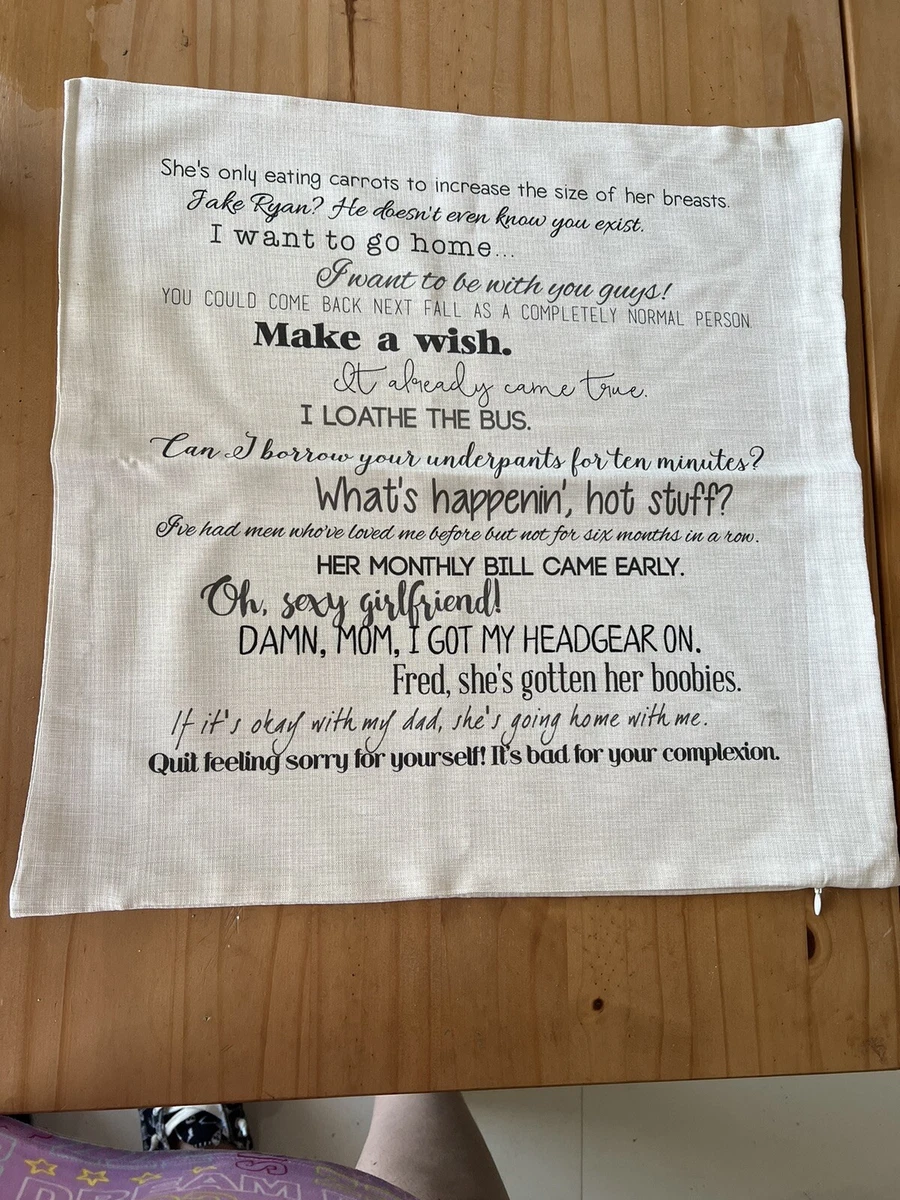 She's only eating carrots to increase the size of her breasts.
Jake Ryan? He doesn't even know you exist.
I want to go home...
I want to be with you guys!
YOU COULD COME BACK NEXT FALL AS A COMPLETELY NORMAL PERSON.
Make a wish.
It already came true.
I LOATHE THE BUS.
Can I borrow your underpants for ten minutes?
What's happenin', hot stuff?
I've had men who've loved me before but not for six months in a row.
HER MONTHLY BILL CAME EARLY.
Oh, sexy girlfriend!
DAMN, MOM, I GOT MY HEADGEAR ON.
Fred, she's gotten her boobies.
If it's okay with my dad, she's going home with me.
Quit feeling sorry for yourself! It's bad for your complexion.